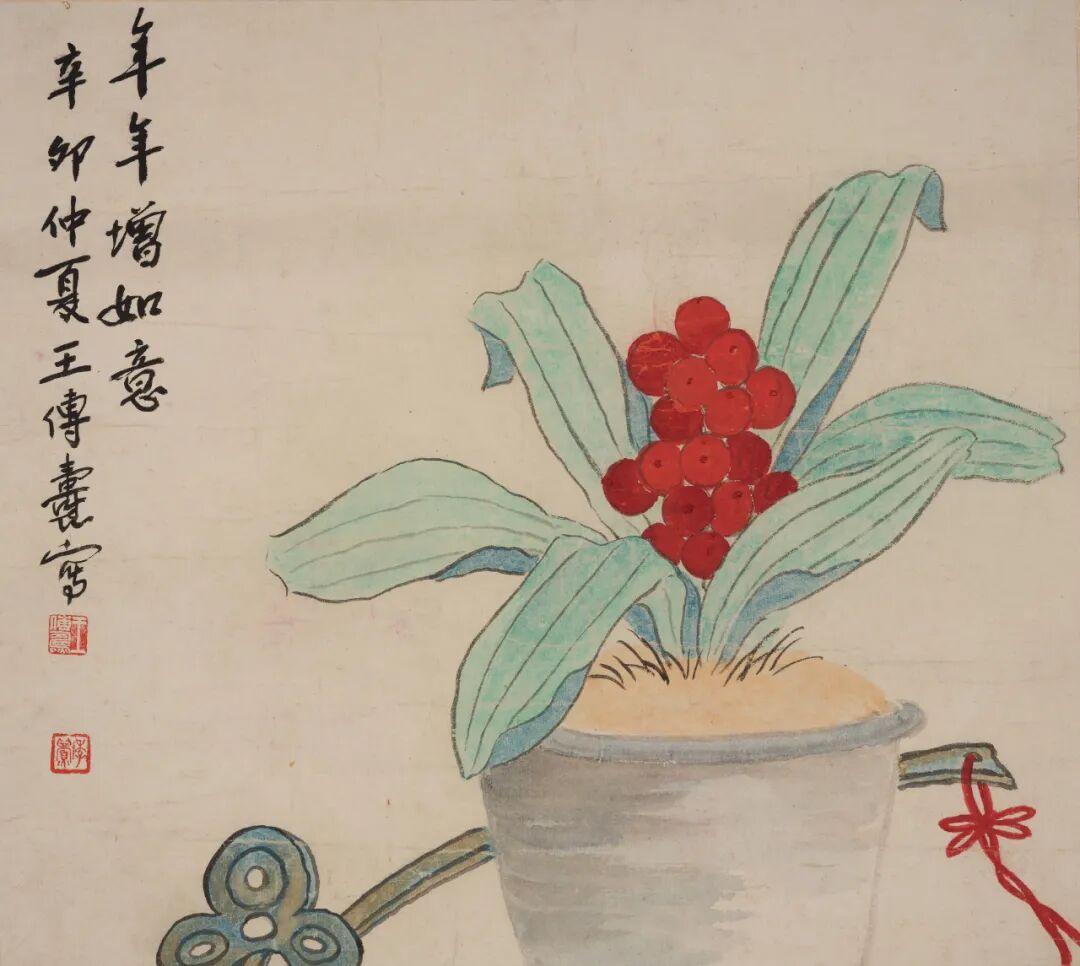 年年增如意
辛卯仲夏王傳燾寫
王傳燾